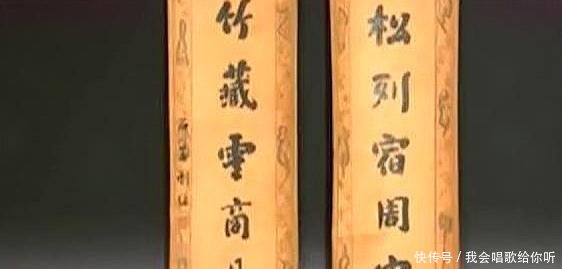 松列宿周
竹藏雲商
快传号／我会唱歌给你听